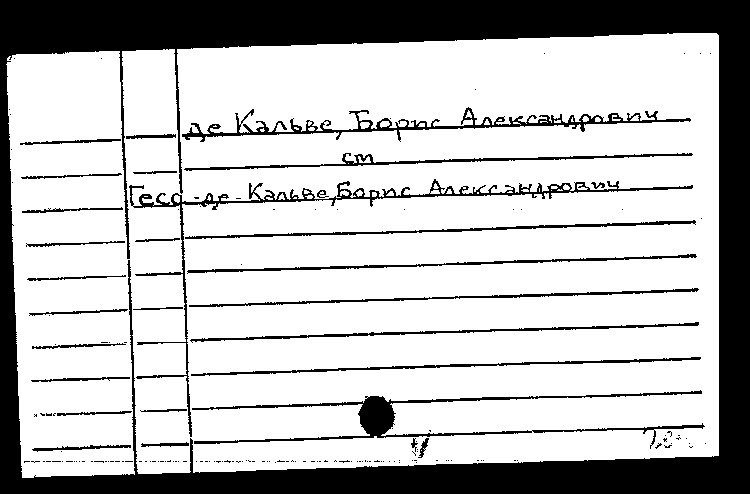 де Кальве, Борис Александрович
см
Гесс-де-Кальве, Борис Александрович